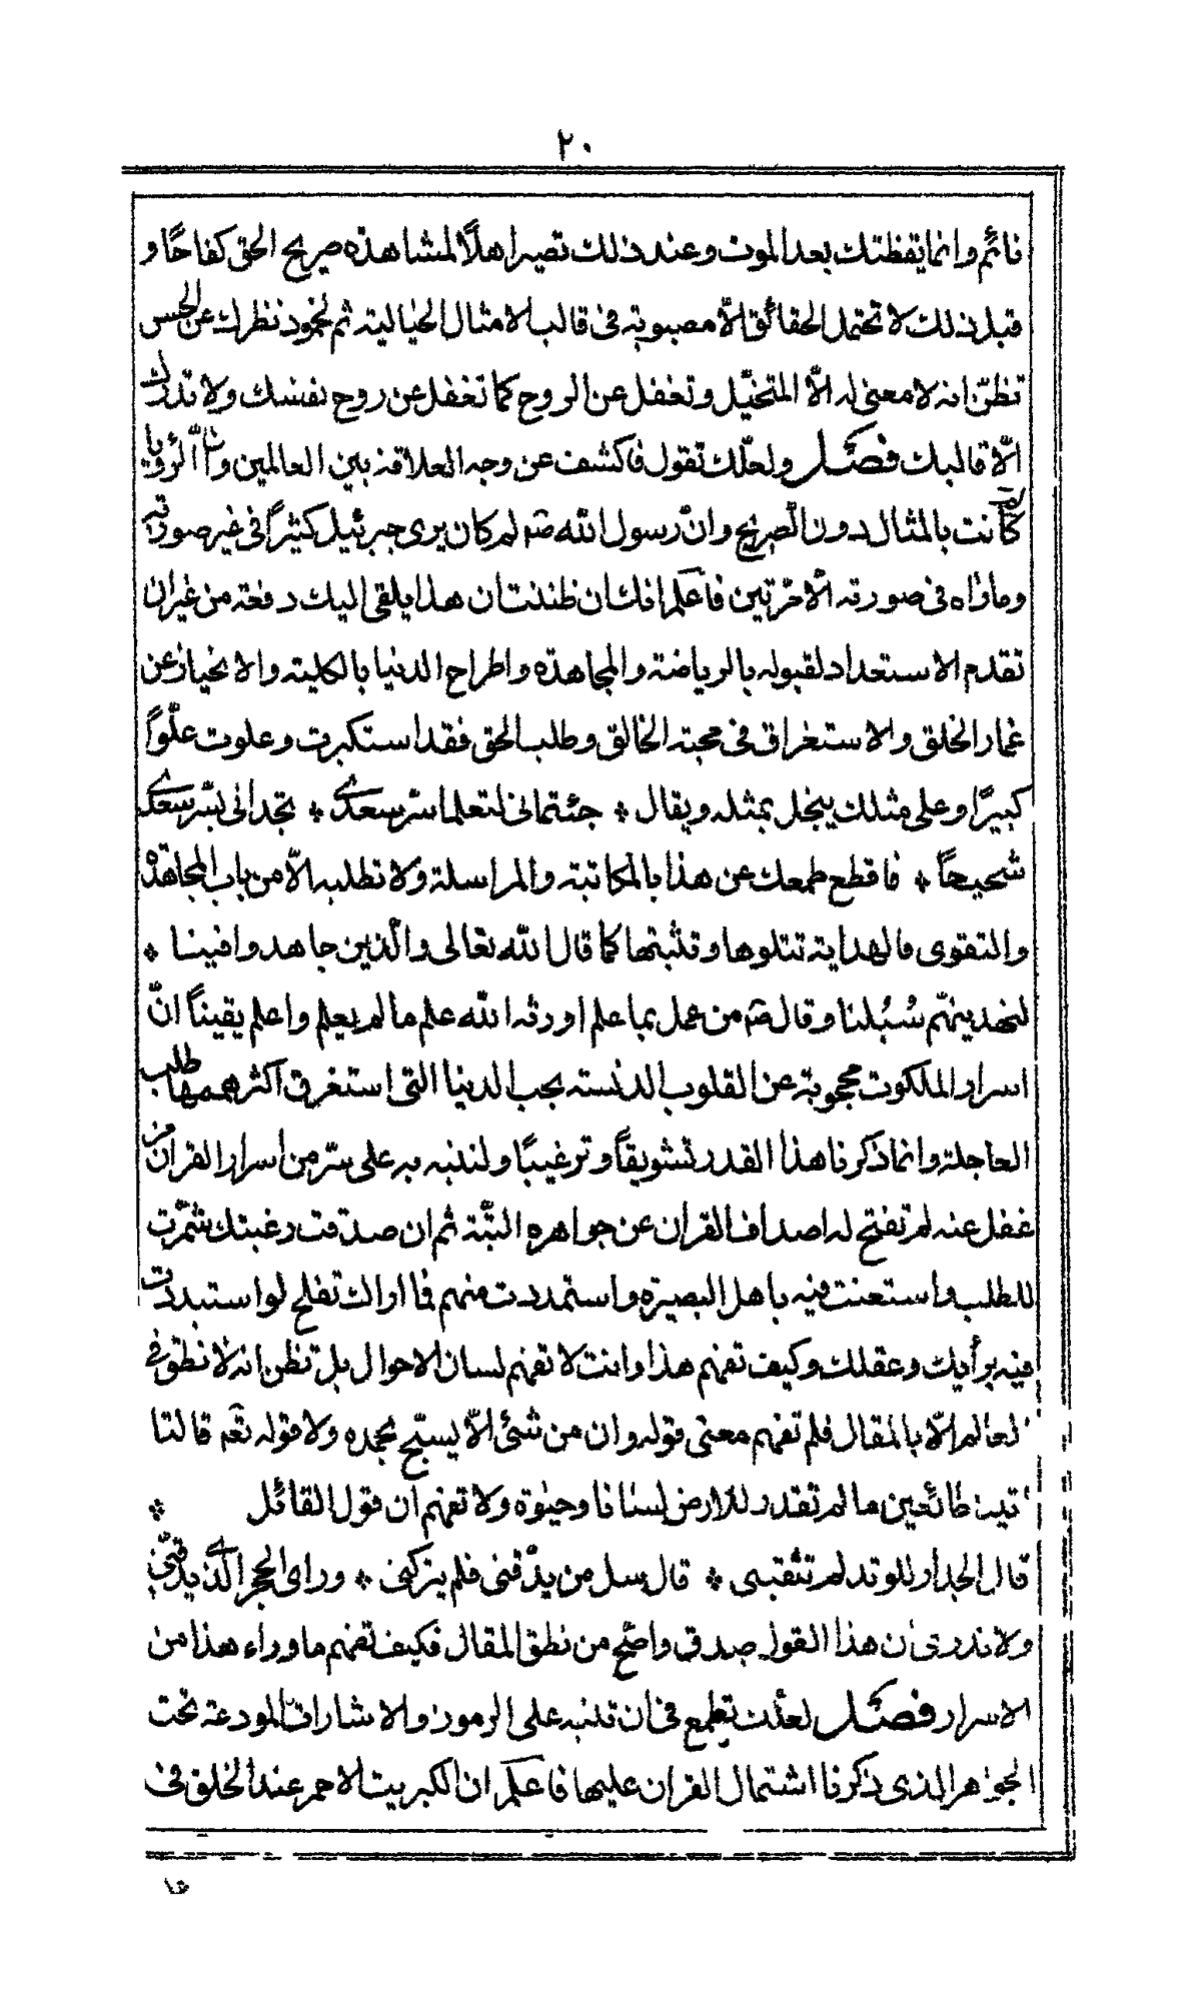 ٢٠
نائم وانما يقظتك بعد الموت وعند ذلك تصير اهلاً لمشاهدة صريح الحق كفاحًا و
قبل ذلك لا تحتمل الحقائق الّا مصبوبة فى قالب الامثال الخيالية ثم لجمود نظرك عن الحس
تظنّ انه لا معنى له الّا المتخيّل وتغفل عن الروح كما تغفل عن روح نفسك ولا تدرك
الّا قالبك فصل ولعلّك تقول فاكشف عن وجه العلاقة بين العالمين وانّ الرؤيا
لم كانت بالمثال دون الصريح وانّ رسول الله صۤ لم كان يرى جبرئيل كثيرًا فى غير صورته
وما راٰه فى صورته الّا مرّتين فاعلم انك ان ظننت ان هذا يلقى اليك دفعة من غير ان
تقدم الاستعداد لقبوله بالرياضة والمجاهدة واطراح الدنيا بالكلية والانحياز عن
غمار الخلق والاستغراق فى محبة الخالق وطلب الحق فقد استكبرت وعلوت علّوًا
كبيرًا وعلى مثلك يبخل بمثله ويقال * جئتمانى لتعلما سرّ سعدى * تجدانى بسّر سعدى
شحيحًا * فاقطع طمعك عن هذا بالمكاتبة والمراسلة ولا تطلبه الّا من باب المجاهدة
والتقوى فالهداية تتلوها وتثبتها كما قال الله تعالى والّذين جاهدوا فينا *
لنهدينهّم سُبُلنا وقال صۤ من عمل بما علم اورثه الله علم ما لم يعلم واعلم يقينًا انّ
اسرار الملكوت محجوبة عن القلوب الدنسة بحب الدنيا التى استغرق اكثر هممها طلب
العاجلة وانما ذكرنا هذا القدر تشويقاً وترغيبًا ولننبه به على سّر من اسرار القراٰن من
غفل عنه لم تفتح له اصداف القران عن جواهره البتّة ثم ان صدقت رغبتك شمّرت
للطلب واستعنت فيه باهل البصيرة واستمددت منهم فما اراك تفلح لو استبددت
فيه برأيك وعقلك وكيف تفهم هذا وانت لا تفهم لسان الاحوال بل تظن انه لا نطق فى
العالم الّا بالمقال فلم تفهم معنى قوله وان من شئ الّا يسبّح بحمده ولا قوله تعۤم قالتا
اتينا طائعين ما لم تقدر للارض لسانا وحيوٰة ولا تفهم ان قول القائل *
قال الجدار للوتد لم تثقبنى * قال سل من يدّقنى فلم يتركنى * وراى الحجر الّذى يدقنّى
ولا تدرى ان هذا القول صدق واضح من نطق المقال فكيف تفهم ما وراء هذا من
الاسرار فصل لعلّك تطمع فى ان تنبه على الرموز والاشارات المودعة تحت
الجواهر الذى ذكرنا اشتمال القران عليها فاعلم ان الكبريت الاحمر عند الخلق فى